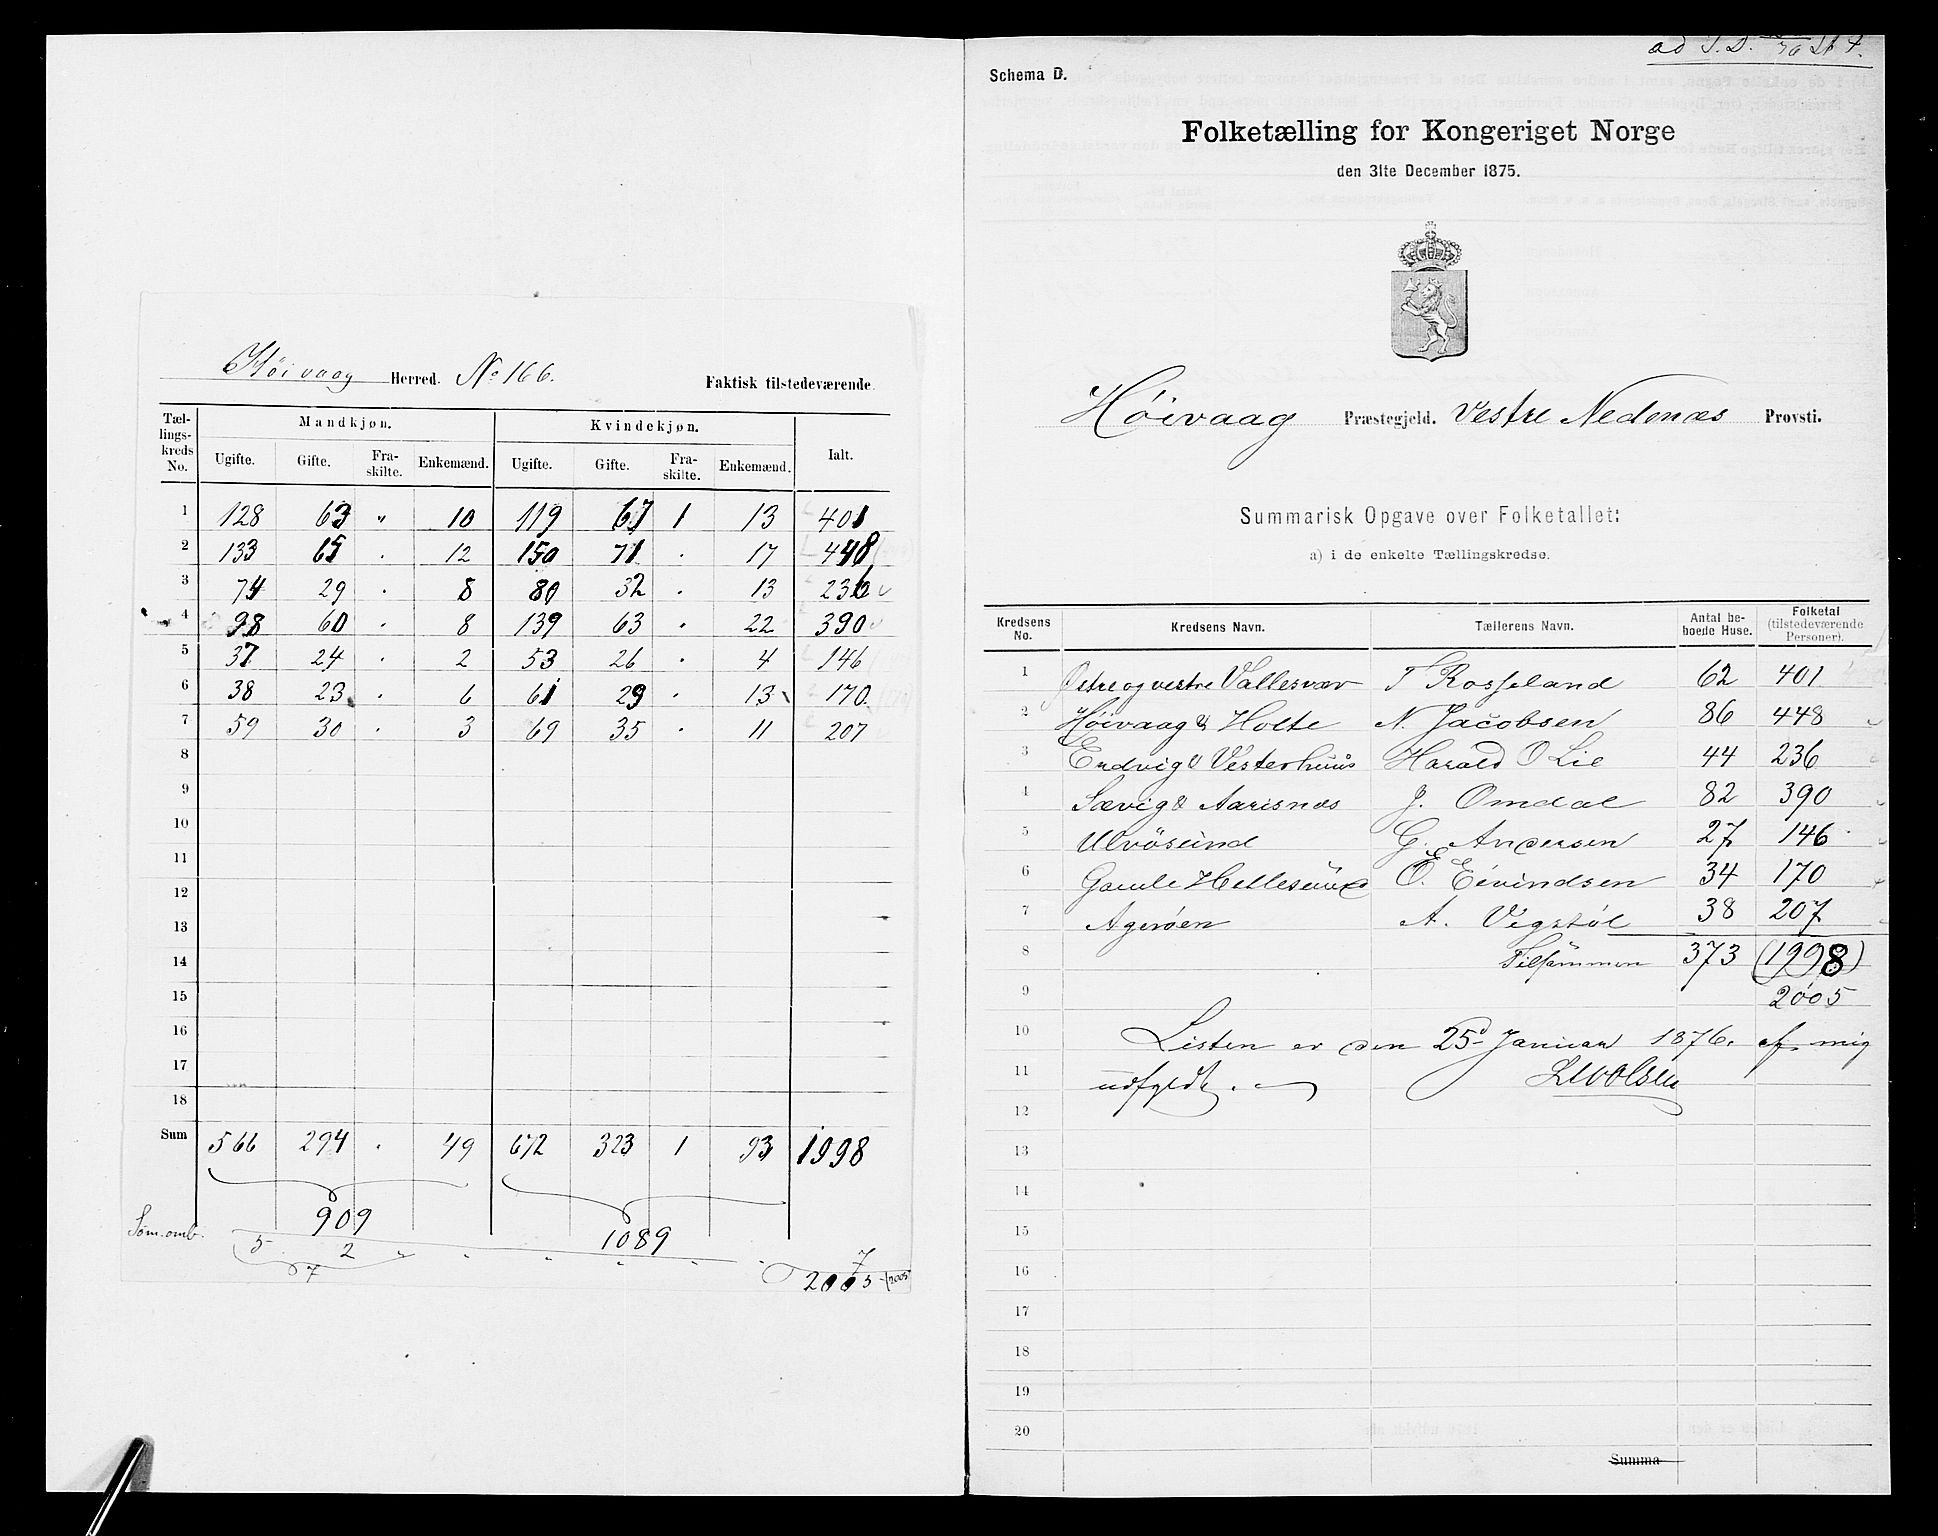 Høivaag Herred. No 166. Faktisk tilstedeværende.
Tællingskreds No. Mandkjøn. Kvindekjøn. Ialt.
Ugifte. Gifte. Fraskilte. Enkemænd. Ugifte. Gifte. Fraskilte. Enkemænd.
1 128 63 " 10 119 67 1 13 401
2 133 65 . 12 150 71 . 17 448
3 74 29 . 8 80 32 . 13 236
4 98 60 . 8 139 63 . 22 390
5 37 24 . 2 53 26 . 4 146
6 38 23 . 6 61 29 . 13 170
7 59 30 . 3 69 35 . 11 207
8
9
10
11
12
13
14
15
16
17
18
Sum 566 294 . 49 672 323 1 93 1998
909 1089
Søm. omb. 5 2 " " " " " " 7
7 2005 (2005)
Schema D.
Folketælling for Kongeriget Norge
den 31te December 1875.
Høivaag Præstegjeld. Vestre Nedenæs Provsti.
Summarisk Opgave over Folketallet:
a) i de enkelte Tællingskredse.
Kredsens No. Kredsens Navn. Tællerens Navn. Antal beboede Huse. Folketal (tilstedeværende Personer).
1 Østre og vestre Vallesvær T Rosseland 62 401
2 Høivaag & Holte N. Jacobsen 86 448
3 Endvig & Vesterhuus Harald O Lie 44 236
4 Sævig & Aarisnæs J. Omdal 82 390
5 Ulvøsund G. Andersen 27 146
6 Gamle Hellesund Ø. Eivindsen 34 170
7 Agerøen A. Vigstøl 38 207
8 Tilsammen 373 (1998)
9 2005
10 Listen er den 25d Januar 1876. af mig
11 udfyldt.
12
13
14
15
16
17
18
19
20
Summa